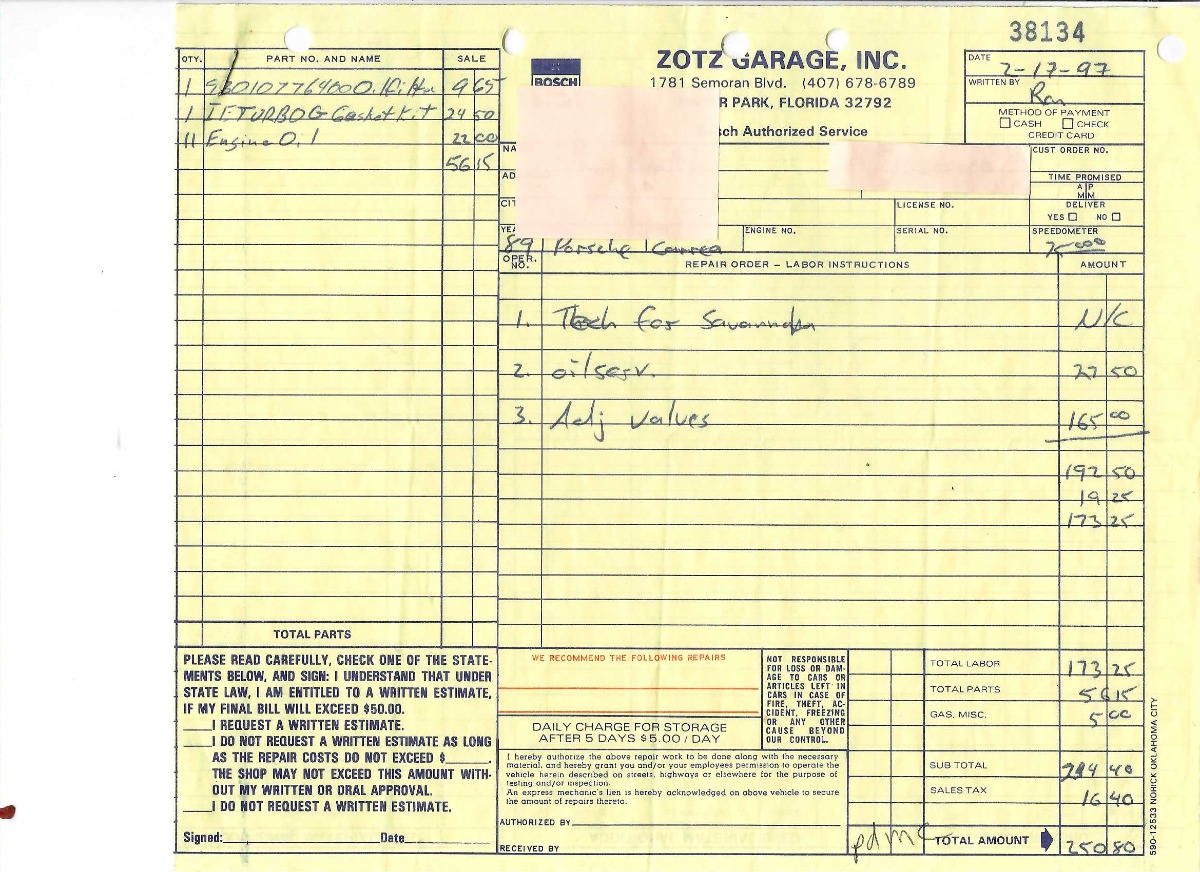 38134
QTY. PART NO. AND NAME SALE
1 93010776400 O. Filter 9 65
1 IETURBOG Gasket Kit 24 50
11 Engine Oil 22 00
56 15
TOTAL PARTS
BOSCH
ZOTZ GARAGE, INC.
1781 Semoran Blvd. (407) 678-6789
R PARK, FLORIDA 32792
sch Authorized Service
DATE 2-17-97
WRITTEN BY Ron
METHOD OF PAYMENT
CASH CHECK
CREDIT CARD
NA
CUST ORDER NO.
AD
TIME PROMISED
A P
M M
CIT
LICENSE NO.
DELIVER
YES NO
YEA
ENGINE NO.
SERIAL NO.
SPEEDOMETER
89 Porsche Carrea
OPER. NO. REPAIR ORDER – LABOR INSTRUCTIONS AMOUNT
1. Tech for Savannah N/C
2. oil serv. 27 50
3. Adj values 165 00
192 50
19 25
173 25
PLEASE READ CAREFULLY, CHECK ONE OF THE STATE-
MENTS BELOW, AND SIGN: I UNDERSTAND THAT UNDER
STATE LAW, I AM ENTITLED TO A WRITTEN ESTIMATE,
IF MY FINAL BILL WILL EXCEED $50.00.
I REQUEST A WRITTEN ESTIMATE.
I DO NOT REQUEST A WRITTEN ESTIMATE AS LONG
AS THE REPAIR COSTS DO NOT EXCEED $
THE SHOP MAY NOT EXCEED THIS AMOUNT WITH-
OUT MY WRITTEN OR ORAL APPROVAL.
I DO NOT REQUEST A WRITTEN ESTIMATE.
Signed: Date
WE RECOMMEND THE FOLLOWING REPAIRS
DAILY CHARGE FOR STORAGE
AFTER 5 DAYS $5.00 / DAY
NOT RESPONSIBLE
FOR LOSS OR DAM-
AGE TO CARS OR
ARTICLES LEFT IN
CARS IN CASE OF
FIRE, THEFT, AC-
CIDENT, FREEZING
OR ANY OTHER
CAUSE BEYOND
OUR CONTROL.
I hereby authorize the above repair work to be done along with the necessary
material, and hereby grant you and/or your employees permission to operate the
vehicle herein described on streets, highways or elsewhere for the purpose of
testing and/or inspection.
An express mechanic's lien is hereby acknowledged on above vehicle to secure
the amount of repairs thereto.
AUTHORIZED BY
RECEIVED BY
TOTAL LABOR 173 25
TOTAL PARTS 56 15
GAS. MISC. 5 00
SUB TOTAL 234 40
SALES TAX 16 40
pd mc TOTAL AMOUNT 250 80
590-12533 NORICK OKLAHOMA CITY